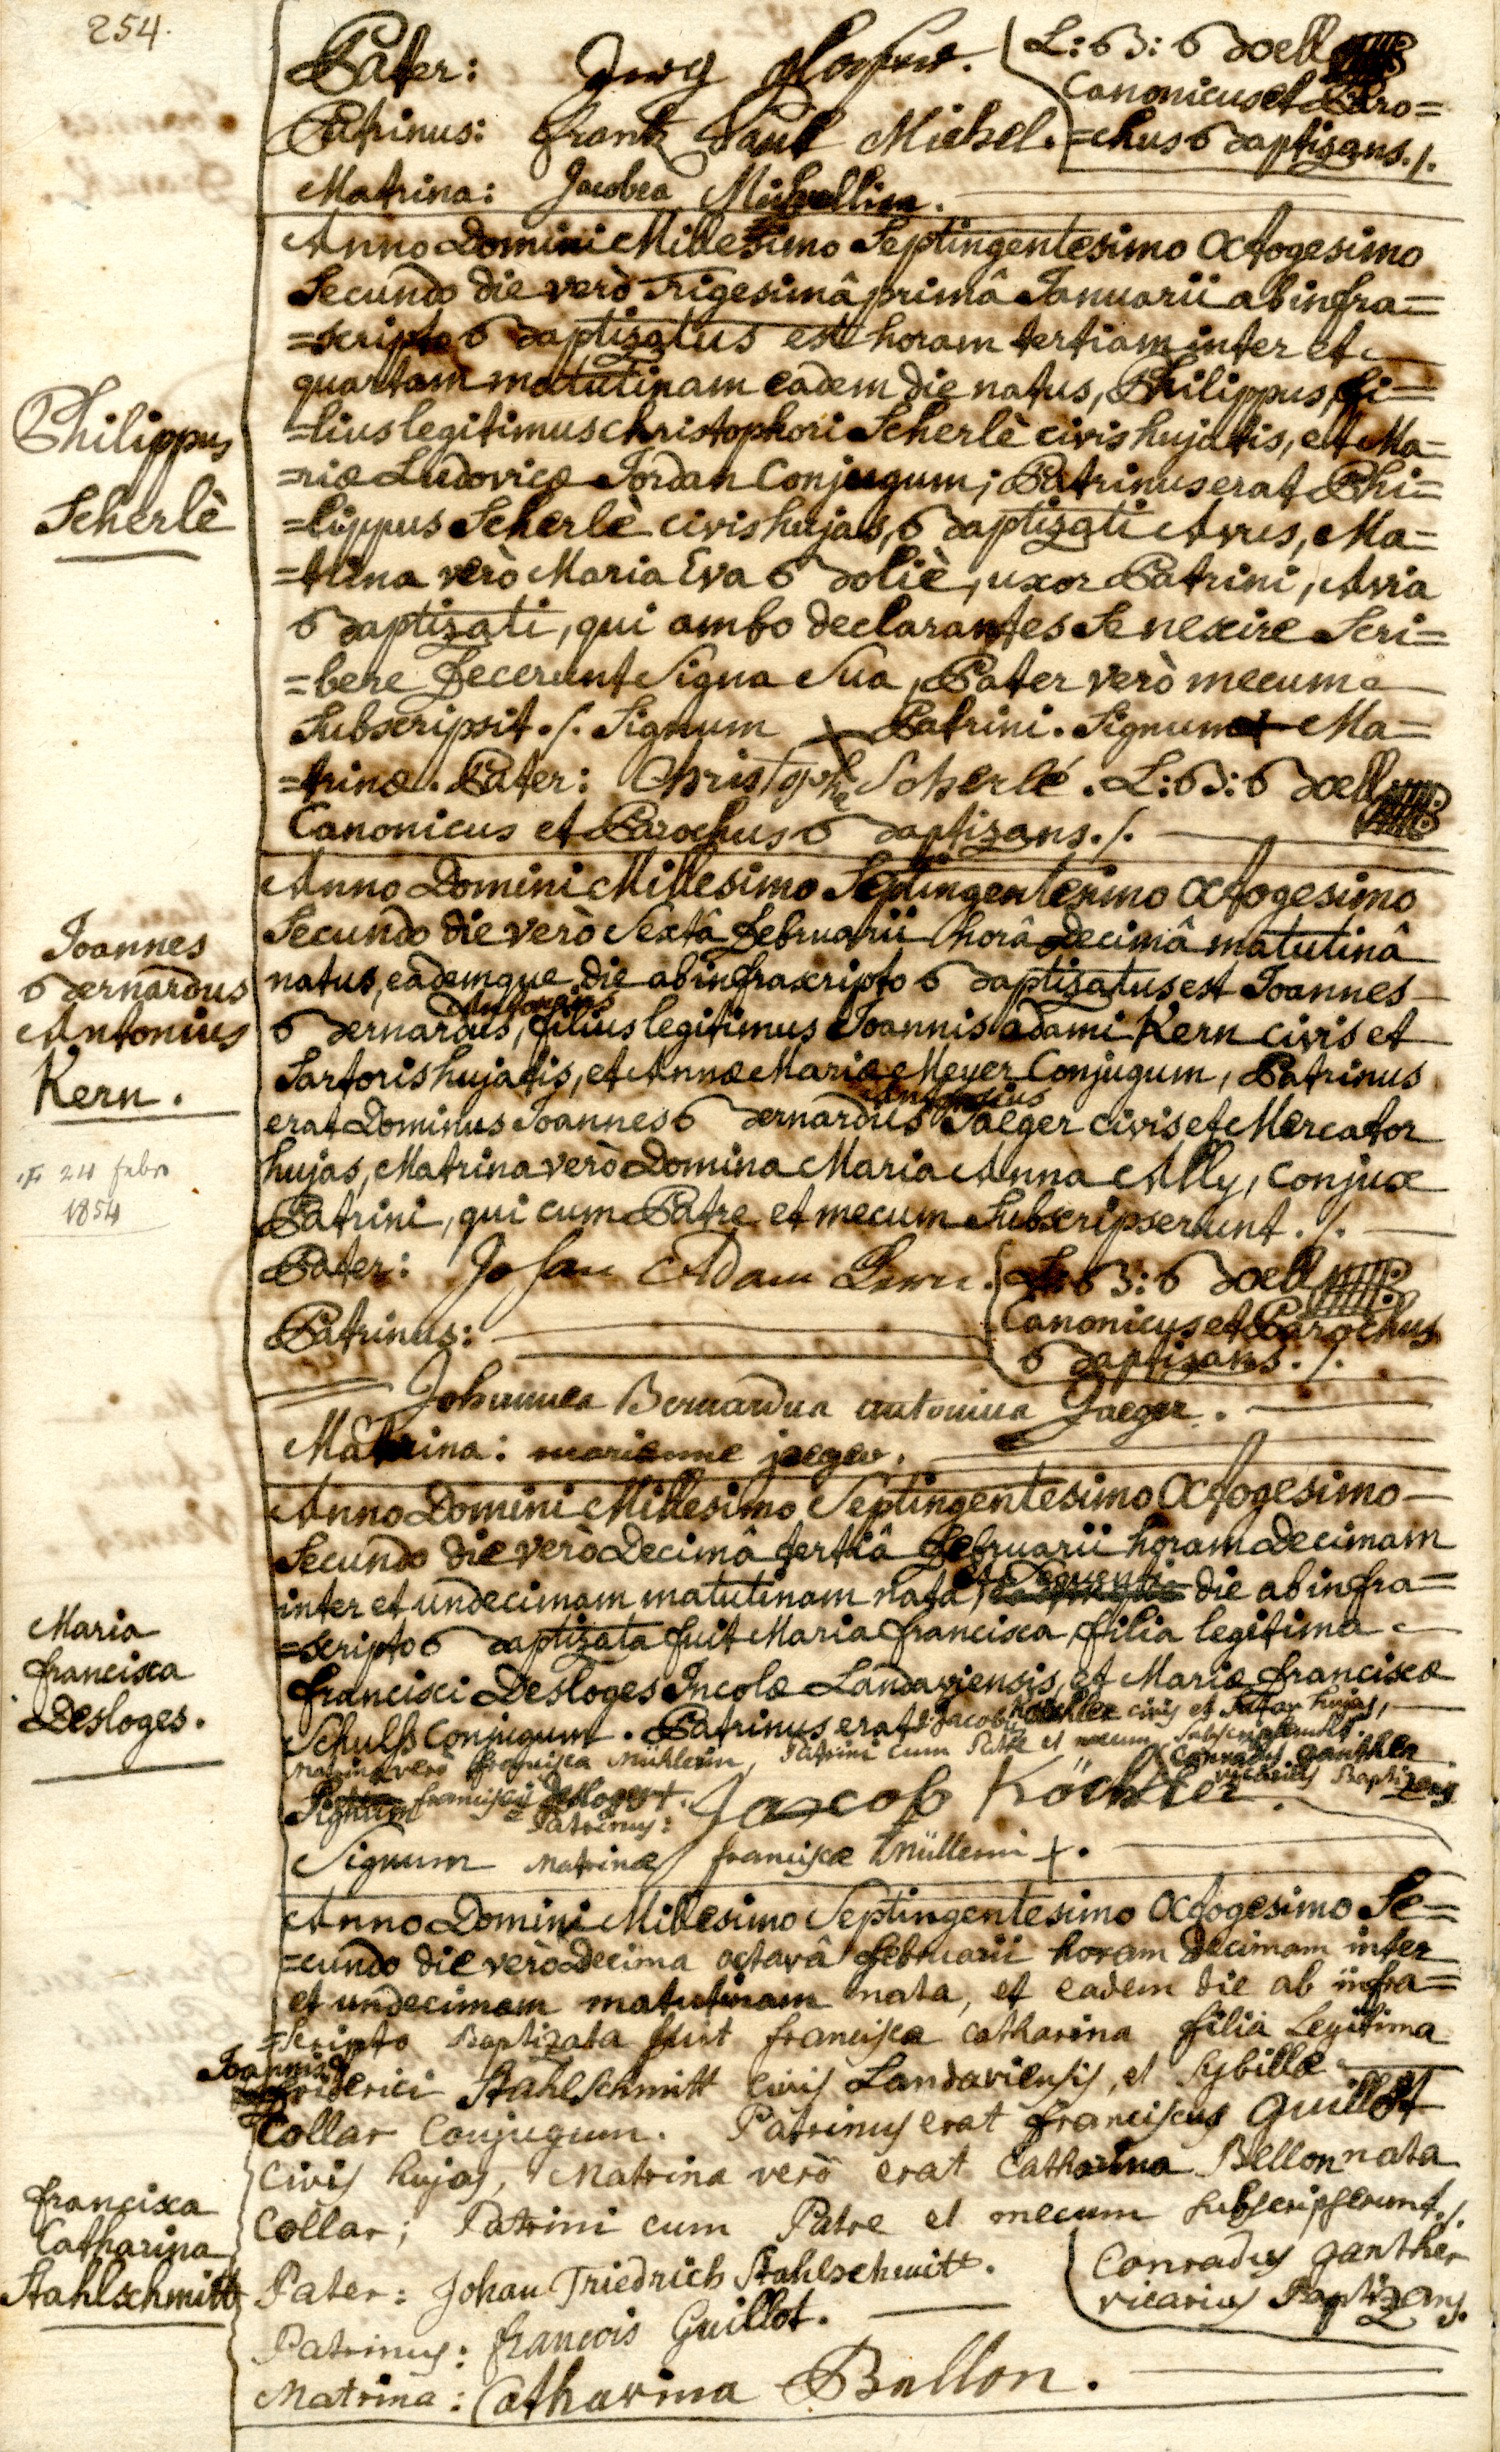 254.
Pater: 
L: B: Boell
Canonicus et Paro=
Patrinus: frantz Paul Michel. =chus Baptizans ./.
Matrina: Jacobea
Anno Domini Millesimo Septingentesimo Octogesimo
Secundo die verò Trigesimâ primâ Januarii ab infra=
=scripto Baptizatus est horam tertiam inter et
quartam matutinam eadem die natus, Philippus, fi=
=lius legitimus Christophori Scherlè civis hujatis, et Ma=
=riæ Ludovicæ Jordan Conjugum; Patrinus erat Phi=
=lippus Scherlè civis hujas, Baptizati Avus, Ma=
=trina verò Maria Eva Boliè, uxor Patrini, Avia
Baptizati, qui ambo declarantes Se nescire Scri=
=bere fecerunt Signa Sua, Pater verò mecum
Subscripsit ./. Signum X Patrini. Signum + Ma=
=trinæ. Pater: Christophe Scherlé. L: B: Boell
Canonicus et Parochus Baptizans ./.
Philippus
Scherlè
Anno Domini Millesimo Septingentesimo Octogesimo
Secundo die verò Sextâ februarii horâ Decimâ matutinâ
natus, eâdemque die ab infrascripto Baptizatus est Joannes
Antonius
Bernardus, filius legitimus Joannis adami Kern civis et
Sartoris hujatis, et Annæ Mariæ Meyer Conjugum, Patrinus
Antonius
erat Dominus Joannes Bernardus Jaeger civis et Mercator
hujas, Matrina verò Domina Maria Anna Ally, conjux
Patrini, qui cum Patre et mecum Subscripserunt ./.
Joannes
Bernardus
Antonius
Kern.
24 febr
1854
Pater: Johan Adam Kern. L: B: Boell
Canonicus et Parochus
Patrinus:
Baptizans ./.
Johannes Bernardus antonius Jaeger.
Matrina: marianne jaeger.
Anno Domini Millesimo Septingentesimo Octogesimo
Secundo die verò Decimâ tertiâ februarii horam Decimam
Sequenti
inter et undecimam matutinam nata, die ab infra=
=scripto Baptizata fuit Maria francisca filia legitima
francisci Desloges Incolæ Landaviensis, et Mariæ franciscæ
Schulss conjugum. Patrinus erat Jacob Köchler civis et hujas,
Matrina verò francisca Mühlerin, Patrini cum Patre et mecum Subscripserunt.
Conradus ganther
vicarius Baptizans
Signum francisci Desloges +.
Patrinus: Jacob Köchler.
Signum Matrinæ franciscæ Müllerin +.
Maria
francisca
Desloges.
Anno Domini Millesimo Septingentesimo Octogesimo Se=
=cundo die verò Decima octavâ februarii horam Decimam inter
et undecimam matutinam nata, et eadem die ab infra=
=scripto Baptizata fuit francisca catharina filia Legitima
Joannis
friderici Stahlschmitt civis Landaviensis, et Sybillæ
Collar Conjugum. Patrinus erat franciscus Guillot
civis hujas, Matrina verò erat Catharina Bellon nata
Collar; Patrini cum Patre et mecum subscripserunt ./.
francisca
Catharina
Stahlschmitt
Pater: Johan Friedrich Stahlschmitt.
Conradus ganther
vicarius Baptizans.
Patrinus: francois Guillot.
Matrina: Catharina Ballon.